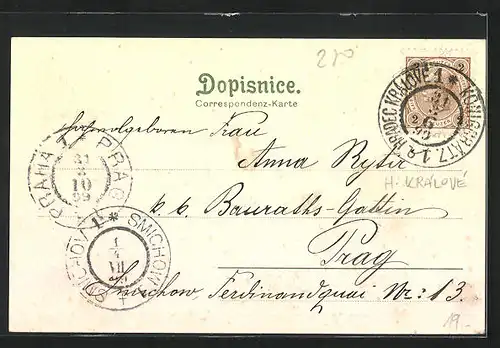 270
Dopisnice.
Correspondenz-Karte
HRADEC KRÁLOVÉ 1 * KÖNIGGRÄTZ 1
31
99
H. KRÁLOVÉ
PRAHA PRAG
31
3
10
99
SMICHOV 1 * SMICHOW
1
4
VII
Hochwolgeboren Frau
Anna Rytir
k. k. Bauraths-Gattin
Prag
Smichow Ferdinandquai Nr: 13.
19.-